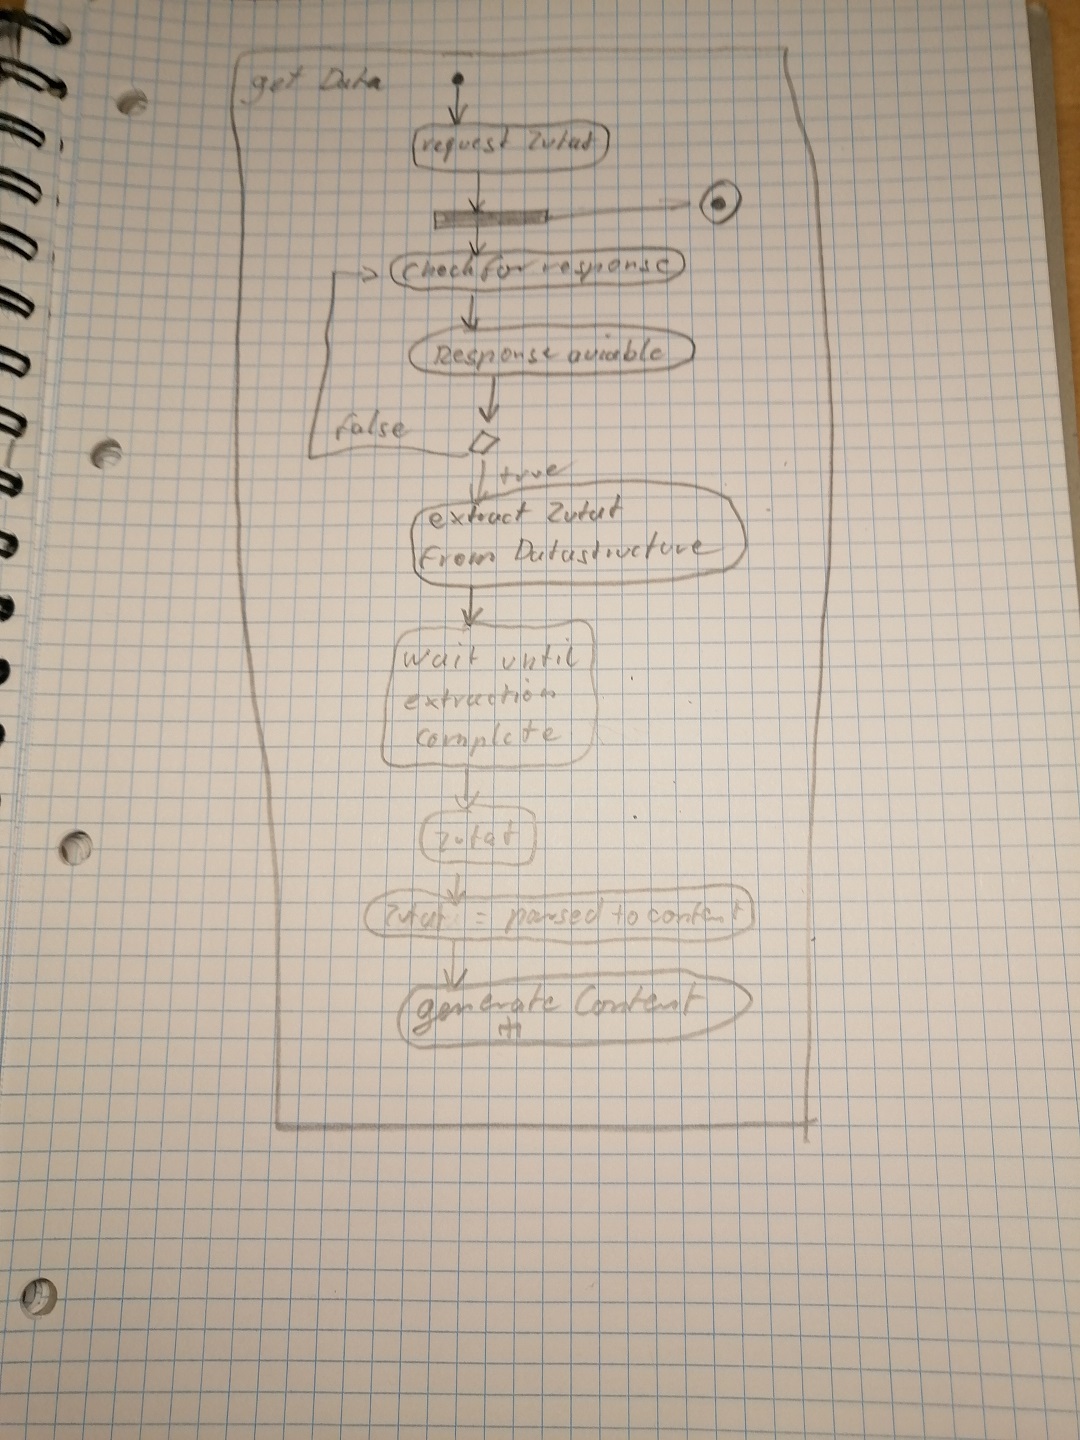 get Data
request Zutat
check for response
Response aviable
false
true
extract Zutat
From Datastructure
wait until
extraction
complete
Zutat
Zutat = parsed to content
generate Content